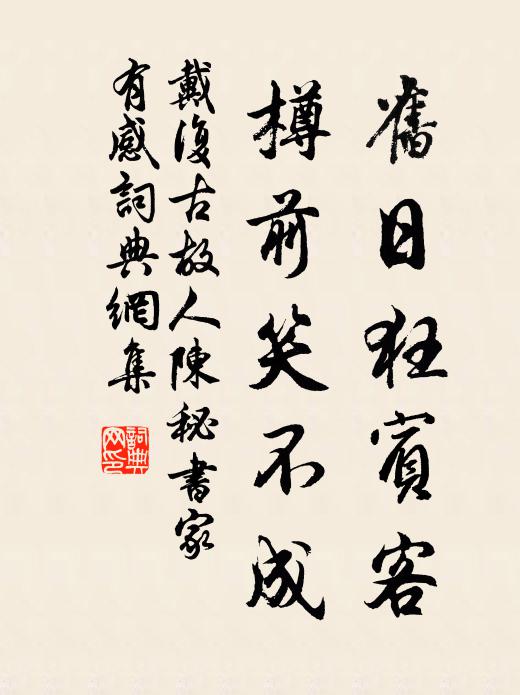 舊日狂賓客
樽前笑不成
戴復古故人陳秘書家
有感詞典網集
詞典
网印